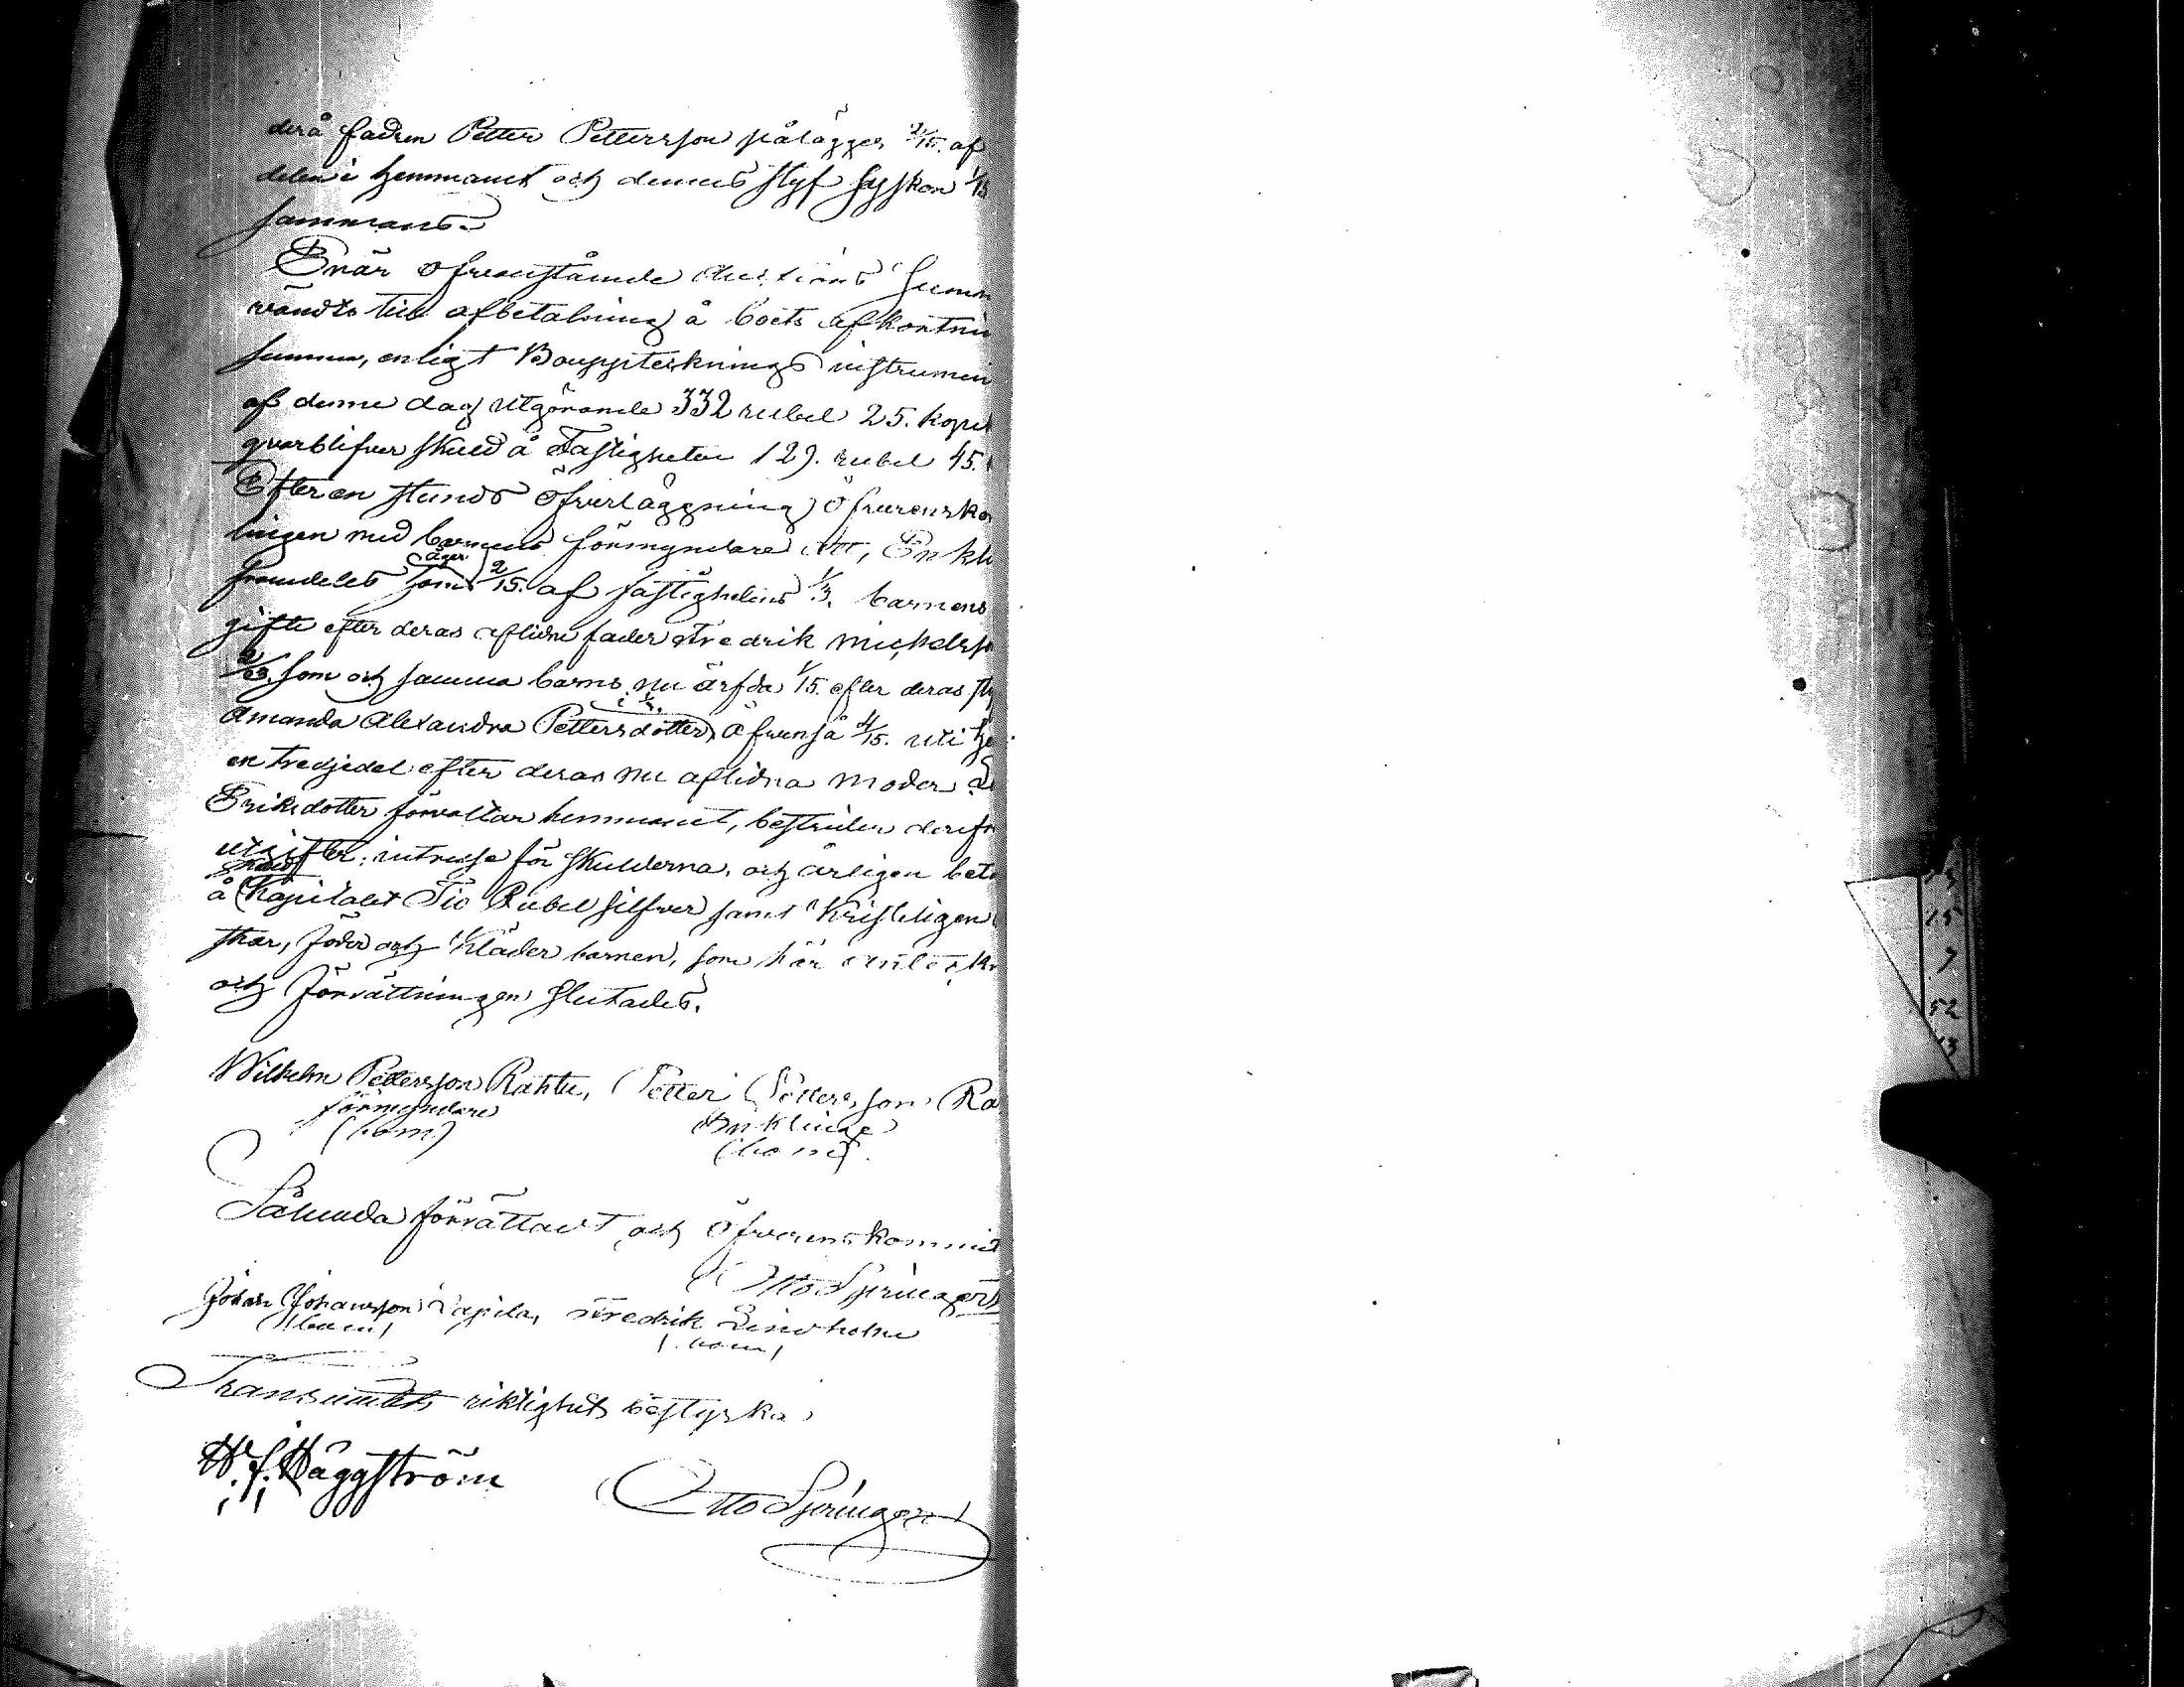 derå fadren Petter Pettersson pålägges 2/15. af
delen i hemmanet och dennes styf syskon 1/15
sammans.
Enär ofvanstående Auctions Summ
vändts till afbetalning å boets afkortni
summa, enligt Bouppteknings instrumen
af denne dag utgörande 332 rubel 25. kope
qvarblifver skuld å Fastigheten 129. rubel 45.
Efter en stunds öfverläggning öfverensko
lingen med barnens förmyndare att, Enkli
framdeles som äger 2/15. af fastighetens 1/3. barnens
gifte efter deras aflidne fader Fredrik Michelss
2/3. som och samma barns nu ärfda 1/15. efter deras sty
i 1/3.
Amanda Alexandra Pettersdotter, äfvenså 4/15. uti he
en tredjedel efter deras nu aflidna moder
Eriksdotter förvaltar hemmanet, bestrider derifr
utgifter, intresse för skulderna, och årligen beta
skuld
å Kapitalet Tio Rubel silfver samt Kristeligen
skär, föder och kläder barnen, som här
och förrättningen slutades.
Wilhelm Pettersson Rahtu, Petter Pettersson Ra
förmyndare Enklinge
(bom.) (bom.)
Sålunda förrättadt och öfverenskommit
Otto Springert
Johan Johansson Lapila, Fredrik Lindholm
(bom) (bom)
Transumtets riktighet bestyrka
W. f. Häggström Otto Springert
15
7
52
13